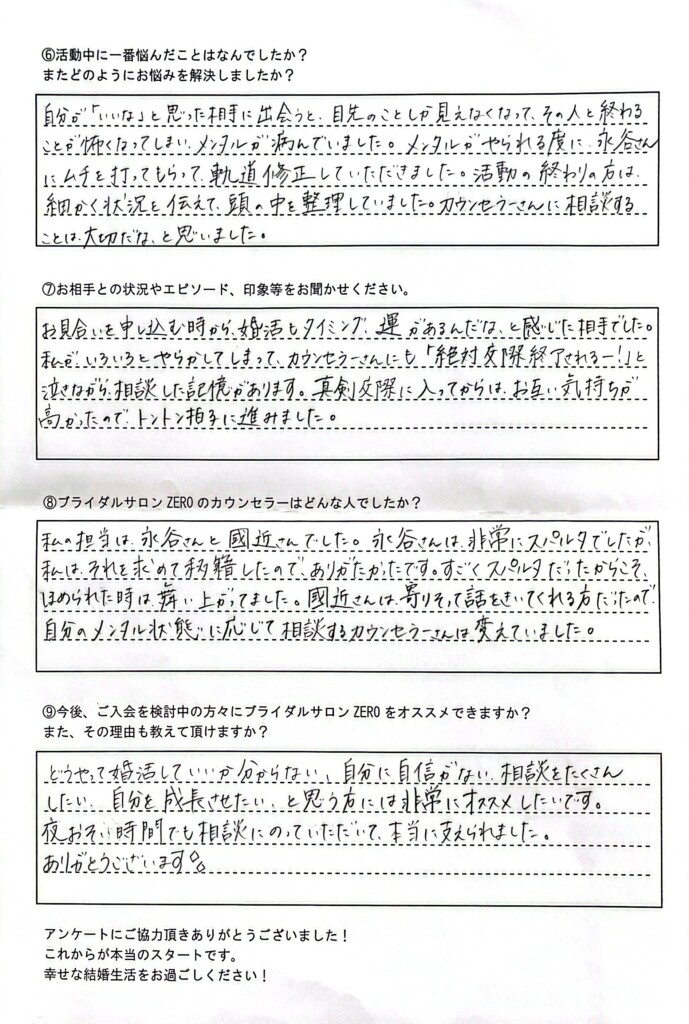 ⑥活動中に一番悩んだことはなんでしたか？
またどのようにお悩みを解決しましたか？
自分が「いいな」と思った相手に出会うと、目先のことしか見えなくなって、その人と終わる
ことが怖くなってしまい、メンタルが病んでいました。メンタルがやられる度に、永谷さん
にムチを打ってもらって、軌道修正していただきました。活動の終わりの方は、
細かく状況を伝えて、頭の中を整理していました。カウンセラーさんに相談する
ことは、大切だな、と思いました。
⑦お相手との状況やエピソード、印象等をお聞かせください。
お見合いを申し込む時から、婚活もタイミング、運があるんだな、と感じた相手でした。
私が、いろいろとやらかしてしまって、カウンセラーさんにも「絶対交際終了されるー！」と
泣きながら、相談した記憶があります。真剣交際に入ってからは、お互い気持ちが
高かったので、トントン拍子に進みました。
⑧ブライダルサロン ZERO のカウンセラーはどんな人でしたか？
私の担当は、永谷さんと國近さんでした。永谷さんは、非常にスパルタでしたが、
私は、それを求めて移籍したので、ありがたかったです。すごくスパルタだったからこそ、
ほめられた時は、舞い上がってました。國近さんは、寄りそって話をきいてくれる方だったので、
自分のメンタル状態に応じて相談するカウンセラーさんは変えていました。
⑨今後、ご入会を検討中の方々にブライダルサロン ZERO をオススメできますか？
また、その理由も教えて頂けますか？
どうやって婚活していいか分からない、自分に自信がない、相談をたくさん
したい、自分を成長させたい、と思う方には非常にオススメしたいです。
夜おそい時間でも相談にのっていただいて、本当に支えられました。
ありがとうございます。
アンケートにご協力頂きありがとうございました！
これからが本当のスタートです。
幸せな結婚生活をお過ごしください！